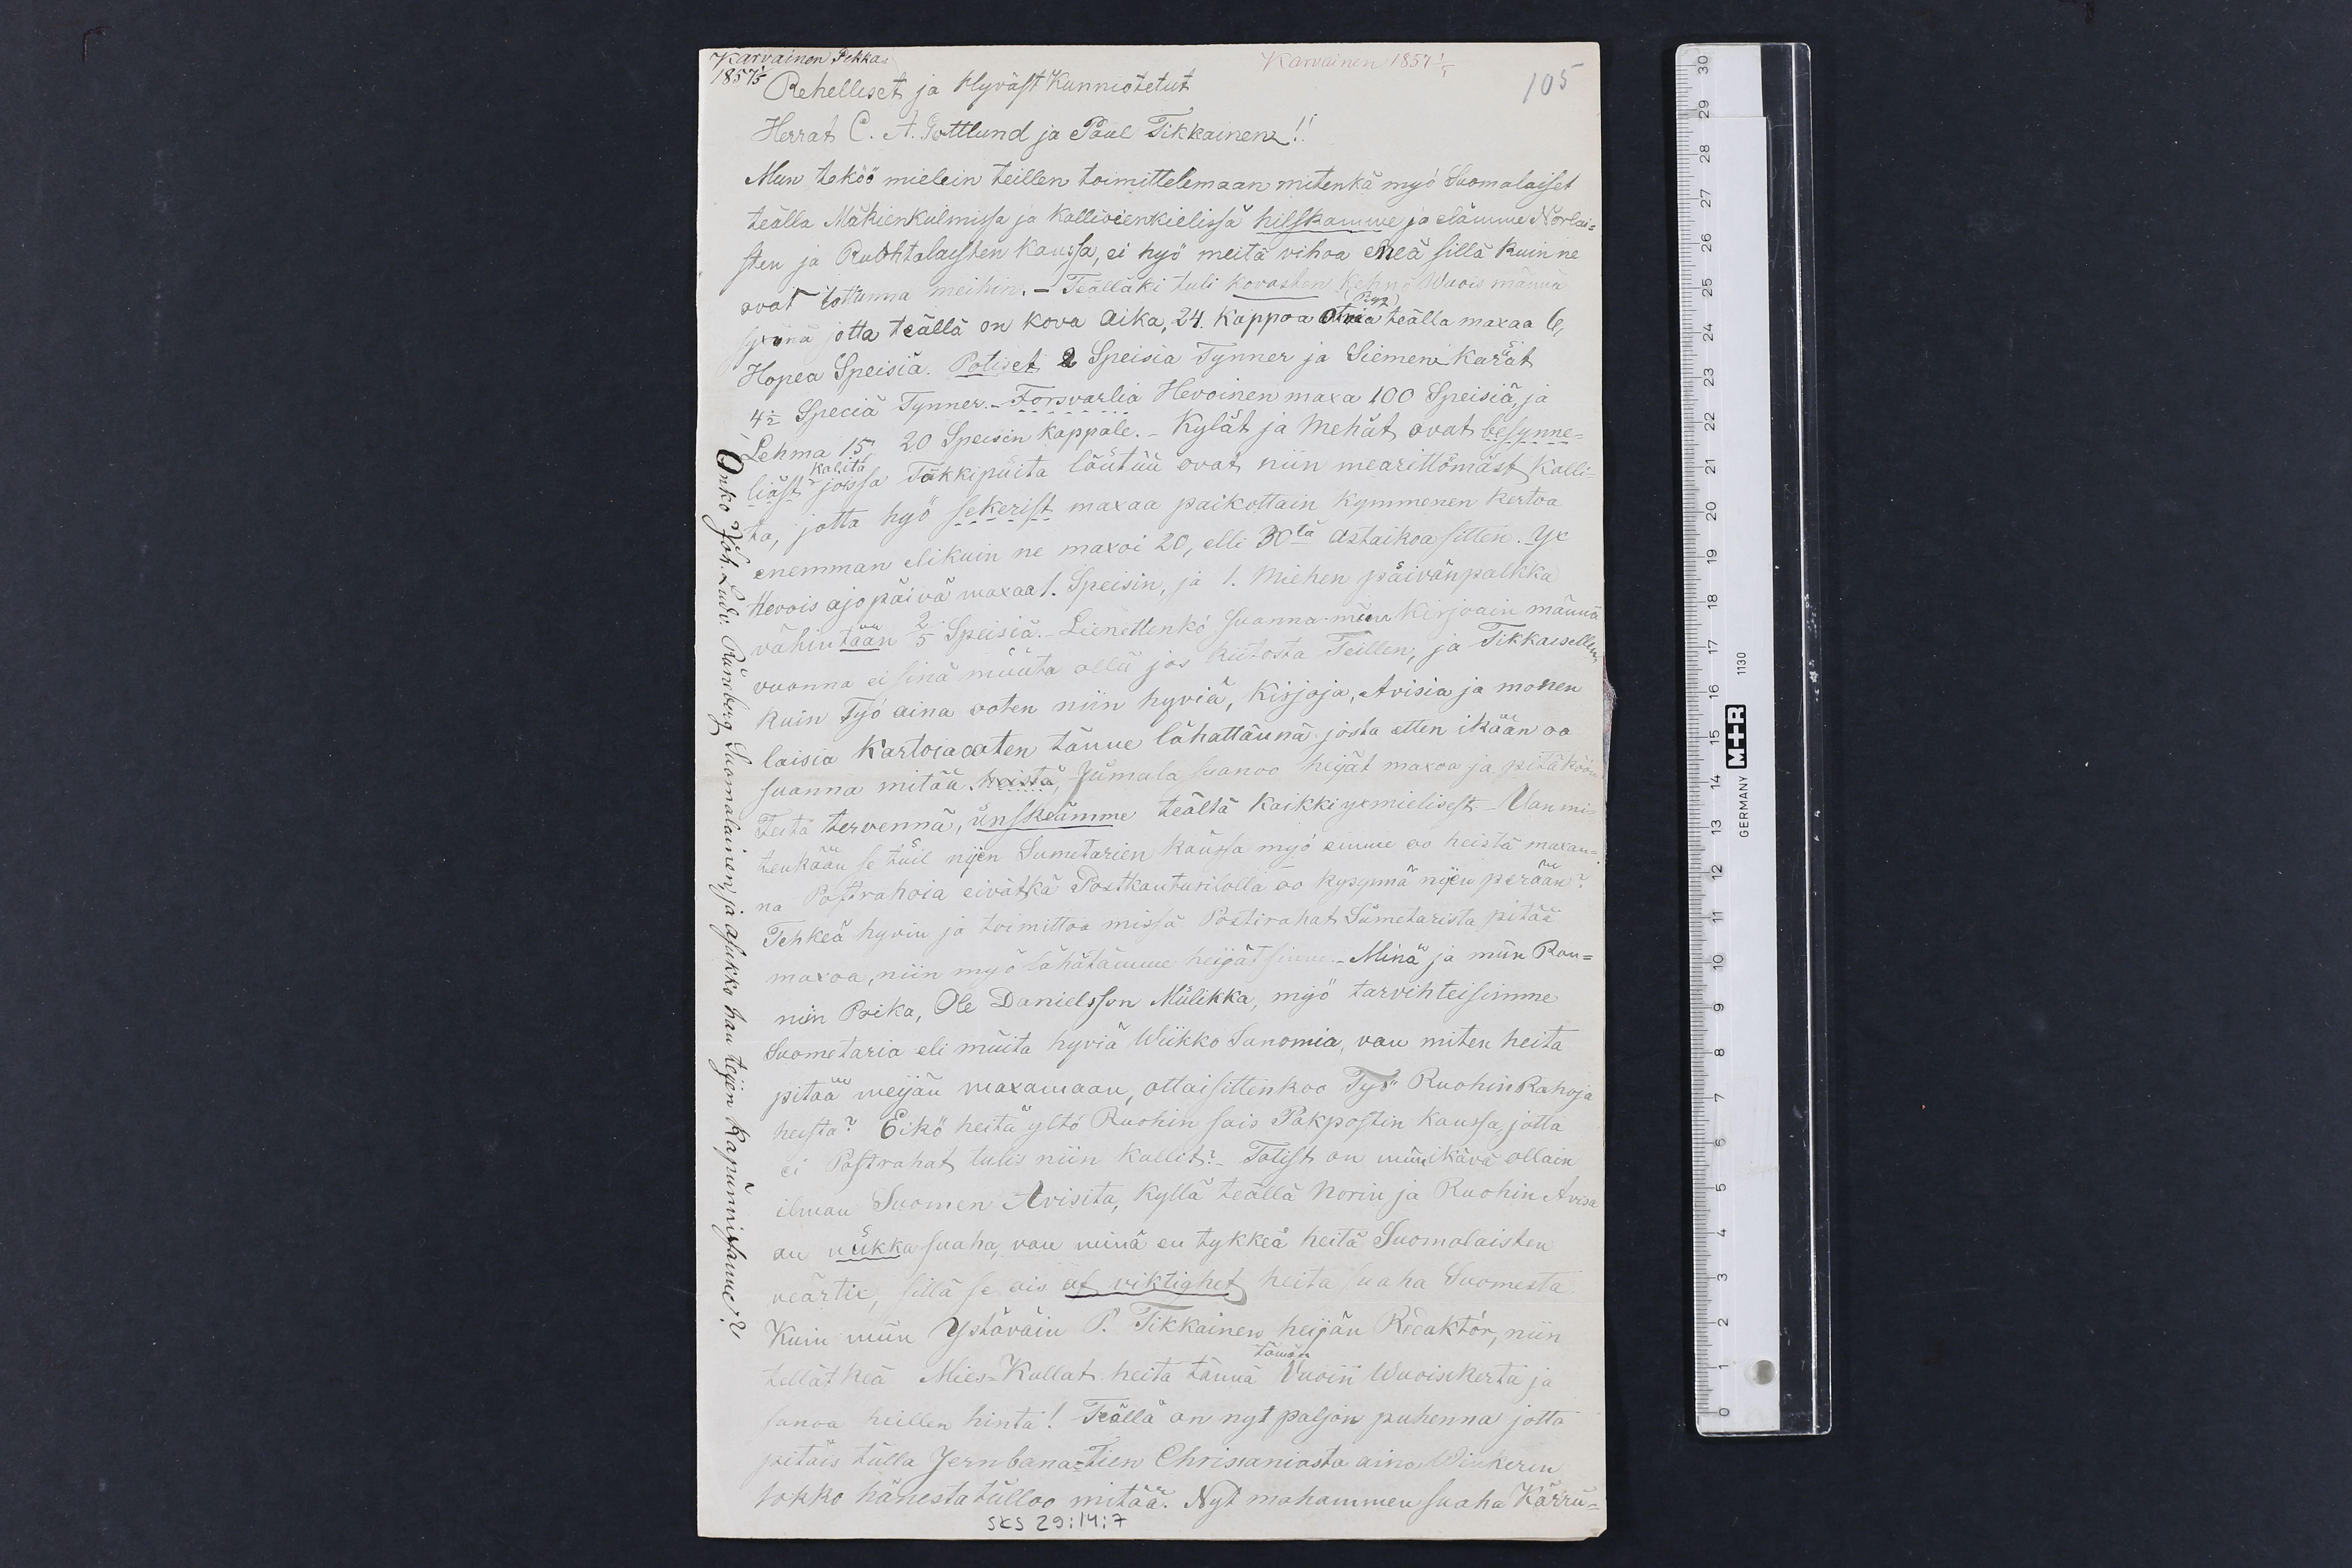 Karvainen Pekka
1857 1/5
Karvainen 1857 1/5
105
Rehelliset ja Hyväst Kunniotetut
Herrat C. A. Gottlund ja Paul Tikkainen!!
Mun teköö mielein teillen toimittelemaan mitenkä myö Suomalaiset
teälla Mäkienkulmissa ja kallioienkielissä hilskamme ja elämme Norlai=
sten ja Ruohtalaisten kaussa, ei hyö meitä vihoa eneä sillä kuin ne
ovat tottunna meihin. - Teälläki tuli kovasten Kehno Wuois männä
syxynä jotta teällä on kova Aika, 24. Kappoa Otria teälla maxaa 6,
Hopea Speisiä. Potiset 2 Speisia Tynner ja Siemeni Karat
4½ Speciä Tynner. - Forsvarlia Hevoinen maxa 100 Speisiä, ja
Lehma 15, 20 Speisin Kappale. - Kylät ja Mehät ovat besynne=
kalita
liäst joissa Tükkipüita löütüü ovat niin mearittömäst Kalli=
ta, jotta hyö sekerist maxaa paikottain Kymmenen kertoa
enemman elikuin ne maxoi 20, elli 30tä astaikoa sitten. Yx
Hevois ajopäivä maxaa 1. Speisin, ja 1. Miehen päivänpalkka
vähintään 2/5 Speisiä. - Lienettenkö suanna mün Kirjoain männä
vuonna ei sinä müüta ollü jos kiitosta Teillen, ja Tikkaisellen
kuin Työ aina ooten niin hyviä, Kirjoja, Avisia ja monen
laisia Kartoia ooten tänne lähattännä josta etten ikään oo
suanna mitää heistä, Jumala suanoo heijät maxoa ja pitäköön
Teitä tervennä, ünskeämme teältä kaikki yxmielisest - Van mi=
tenkään se tüil nijen Sumetarien kaussa myö eimme oo heistä maxan=
na Postrahoia eivätkä Postkantorilolla oo kysynnä nijen perään?
Tehkeä hyvin ja toimittoa missä Postirahat Sümetarista pitää
maxoa, niin myö lähätämme heijät sinne. - Minä ja mün Ran=
nin Poika, Ole Danielsson Mülikka, myö tarvihteisimme
Suometaria eli müita hyviä Wiikko Sanomia, van miten heita
pitää meijän maxamaan, ottaisittenkoo Työ Ruohin Rahoja
heista? Eikö heitä yltö Ruohin sais Pakpostin kaussa, jotta
ei Postrahat tulis niin kallit? - Totist on mün ikävä ollain
ilman Suomen Avisita, kyllä teällä Norin ja Ruohin Avisa
on nükka suaha, van minä en tykkeä heitä Suomalaisten
veärtie, sillä se ois af viktighet heita suaha Suomesta
Kuin mün Ystäväin P. Tikkainen heijän Redaktör, niin
tämän
tellätkeä Mies-Kullat heita tännä Vuoin Wuoisikerta ja
sanoa heillen hinta! Teällä on nyt paljon puhenna jotta
pitäis tülla Jernbana=Tien Chrisaniasta aina Winkerin
Jokko hänestä tülloo mitää. Nyt mahammen suaha Kärrü=
Onko Joh. Ludv. Rüneberg Suomalainen, ja asukko hän teijen Kapünnissanne?
SKS 29:14:7
GERMANY M+R 1130
0 1 2 3 4 5 6 7 8 9 10 11 12 13 14 15 16 17 18 19 20 21 22 23 24 25 26 27 28 29 30